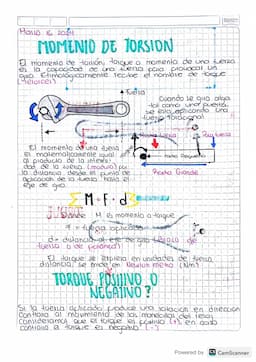 Marzo 6, 2024
MOMENTO DE TORSION
El momento de torsión, torque o momento de una fuerza
es la capacidad de una fuerza para producir un
giro. Etimológicamente recibe el nombre de torque
Fuerza
Cuando se gira algo
tal como una puerta,
se está aplicando una
fuerza
El momento de una fuerza
es matemáticamente igual
al producto de la intensi-
dad de la fuerza (módulo) por
la distancia desde el punto de
aplicación de la fuerza hasta el
eje de giro.
Poca fuerza
Giro Pequeño
Giro Grande
M = F · d
Donde M es momento o torque
F = fuerza aplicada
d = distancia al eje de giro (brazo de
fuerza o de palanca)
El torque se expresa en unidades de fuerza
distancia, se mide en Newton metro (Nm)
TORQUE POSITIVO O
NEGATIVO?
Si la fuerza aplicada produce una rotación en dirección
contraria al movimiento de las manecillas del reloj,
consideramos que el torque es positivo (+), en caso
contrario el torque es negativo (-)
Powered by CS CamScanner